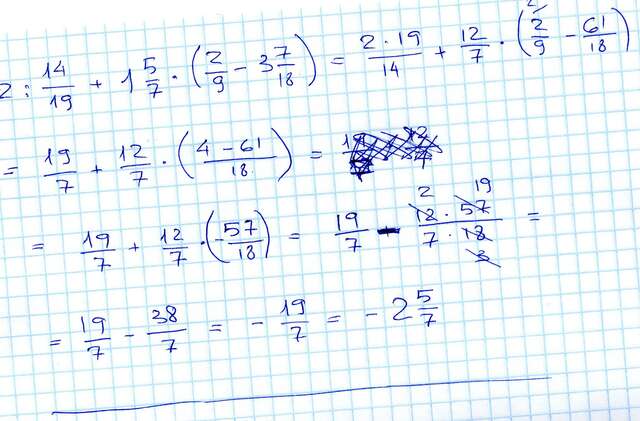 2 : 14/19 + 1 5/7 · (2/9 - 3 7/18) = 2·19/14 + 12/7 · (2/9 - 61/18)
= 19/7 + 12/7 · (4-61/18) =
= 19/7 + 12/7 · (-57/18) = 19/7 - 12·57/7·18 = 2 19 3
= 19/7 - 38/7 = - 19/7 = - 2 5/7